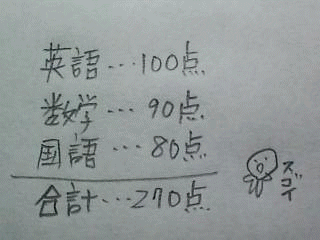 英語…100点
数学…90点
国語…80点
合計…270点
スゴイ